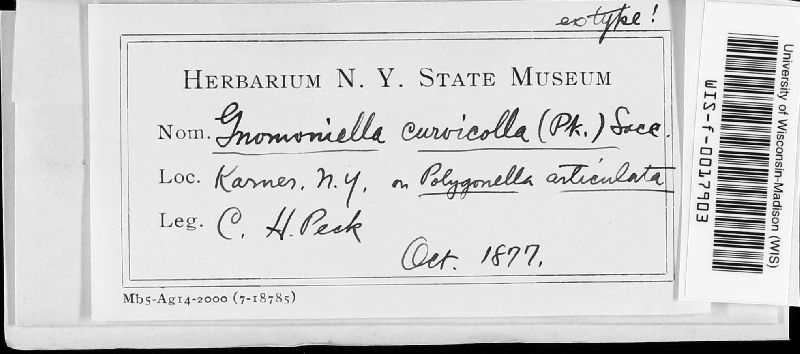 ex type!
HERBARIUM N. Y. STATE MUSEUM
Nom. Gnomoniella curvicolla (Pk.) Sacc.
Loc. Karner, N.Y. on Polygonella articulata
Leg. C. H. Peck
Oct. 1877.
Mb5-Ag14-2000 (7-18785)
University of Wisconsin-Madison (WIS)
WIS-f-0017903